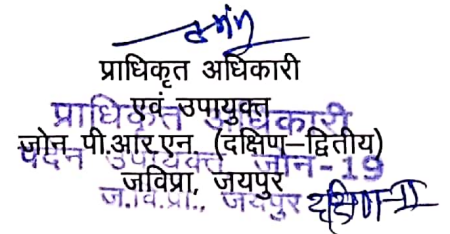 प्राधिकृत अधिकारी
एवं उपायुक्त
जोन पी.आर.एन. (दक्षिण–द्वितीय)
जविप्रा, जयपुर
प्राधिकृत अधिकारी
पदेन उपायुक्त जोन-19
ज.वि.प्रा., जयपुर दक्षिण-II